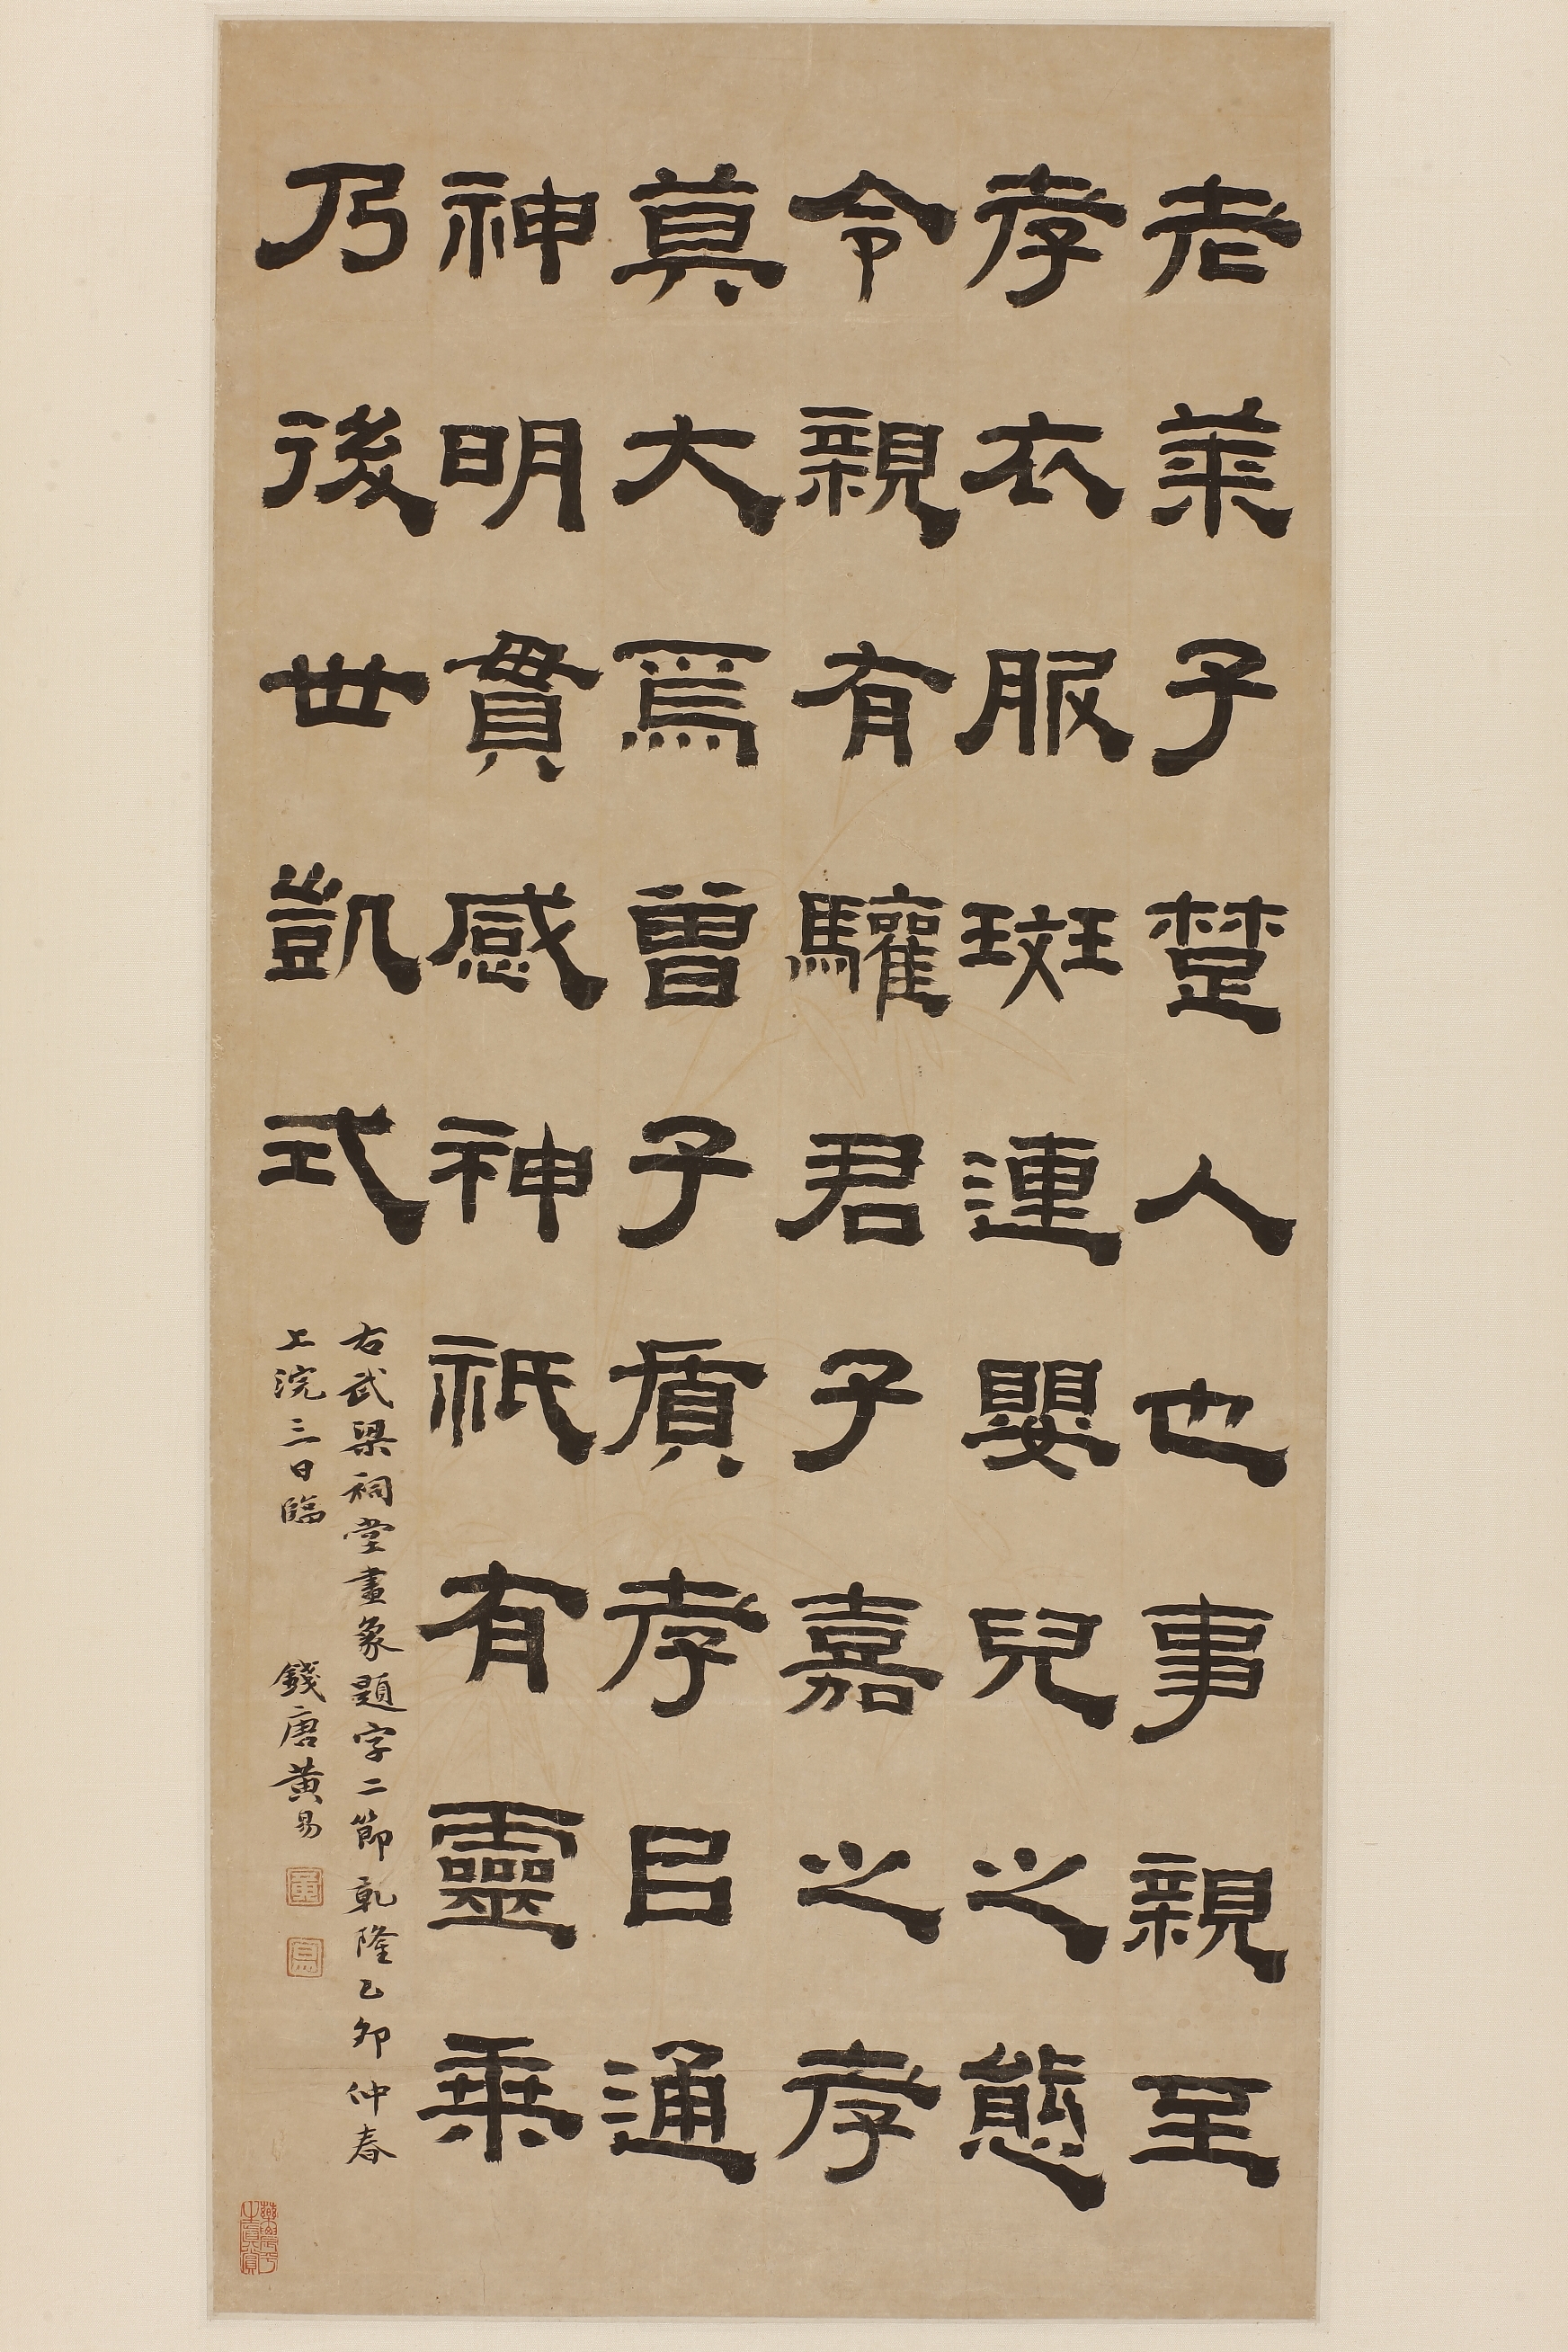 老萊子楚人也事親至
孝衣服斑連嬰兒之態
令親有驩君子嘉之孝
莫大焉曾子質孝㠯通
神明貫感神祇有靈乗
乃後世凱式
右武梁祠堂畫象題字二節乾隆乙卯仲春
上浣三日臨 錢唐黃易